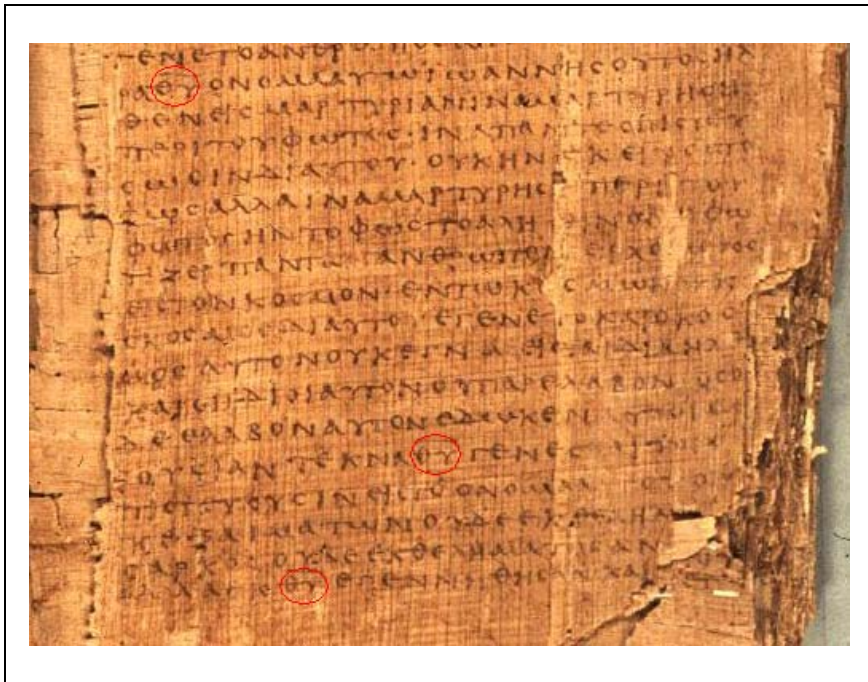 ΓΕΝΕΤΟΑΝΘΡΩΠΟϹ
ΡΑΘΥΟΝΟΜΑΑΥΤΩΙΩΑΝΝΗϹΟΥΤΟϹΗΛ
ΘΕΝΕΙϹΜΑΡΤΥΡΙΑΝΙΝΑΜΑΡΤΥΡΗϹΗ
ΠΕΡΙΤΟΥΦΩΤΟϹ·ΙΝΑΠΑΝΤΕϹΠΙϹΤΕΥ
ϹΩϹΙΝΔΙΑΥΤΟΥ·ΟΥΚΗΝΕΚΕΙΝΟϹΤΟ
ΦΩϹΑΛΛΑΙΝΑΜΑΡΤΥΡΗϹΗΠΕΡΙΤΟΥ
ΦΩΤΟϹΗΝΤΟΦΩϹΤΟΑΛΗΘΙΝΟΝΟΦΩ
ΤΙΖΕΙΠΑΝΤΑΑΝΘΡΩΠΟΝΕΡΧΟΜΕΝΟΝ
ΕΙϹΤΟΝΚΟϹΜΟΝ·ΕΝΤΩΚΟϹΜΩΗΝΚΑΙ
ΟΚΟϹΜΟϹΔΙΑΥΤΟΥΕΓΕΝΕΤΟΚΑΙΟΚΟϹ
ΜΟϹΑΥΤΟΝΟΥΚΕΓΝΩΕΙϹΤΑΙΔΙΑΗΛΘΕ
ΚΑΙΟΙΙΔΙΟΙΑΥΤΟΝΟΥΠΑΡΕΛΑΒΟΝ·ΟϹΟΙ
ΔΕΕΛΑΒΟΝΑΥΤΟΝΕΔΩΚΕΝΑΥΤΟΙϹΕ
ΞΟΥϹΙΑΝΤΕΚΝΑΘΥΓΕΝΕϹΘΑΙΤΟΙϹ
ΠΙϹΤΕΥΟΥϹΙΝΕΙϹΤΟΟΝΟΜΑΑΥΤΟΥ
ΚΕΞΑΙΜΑΤΩΝΟΥΔΕΕΚΘΕΛΗΜΑ
ϹΑΡΚΟϹΟΥΔΕΕΚΘΕΛΗΜΑΤΟϹΑΝ
ΑΛΛΑΕΚΘΥΕΓΕΝΝΗΘΗϹΑΝΚΑΙ